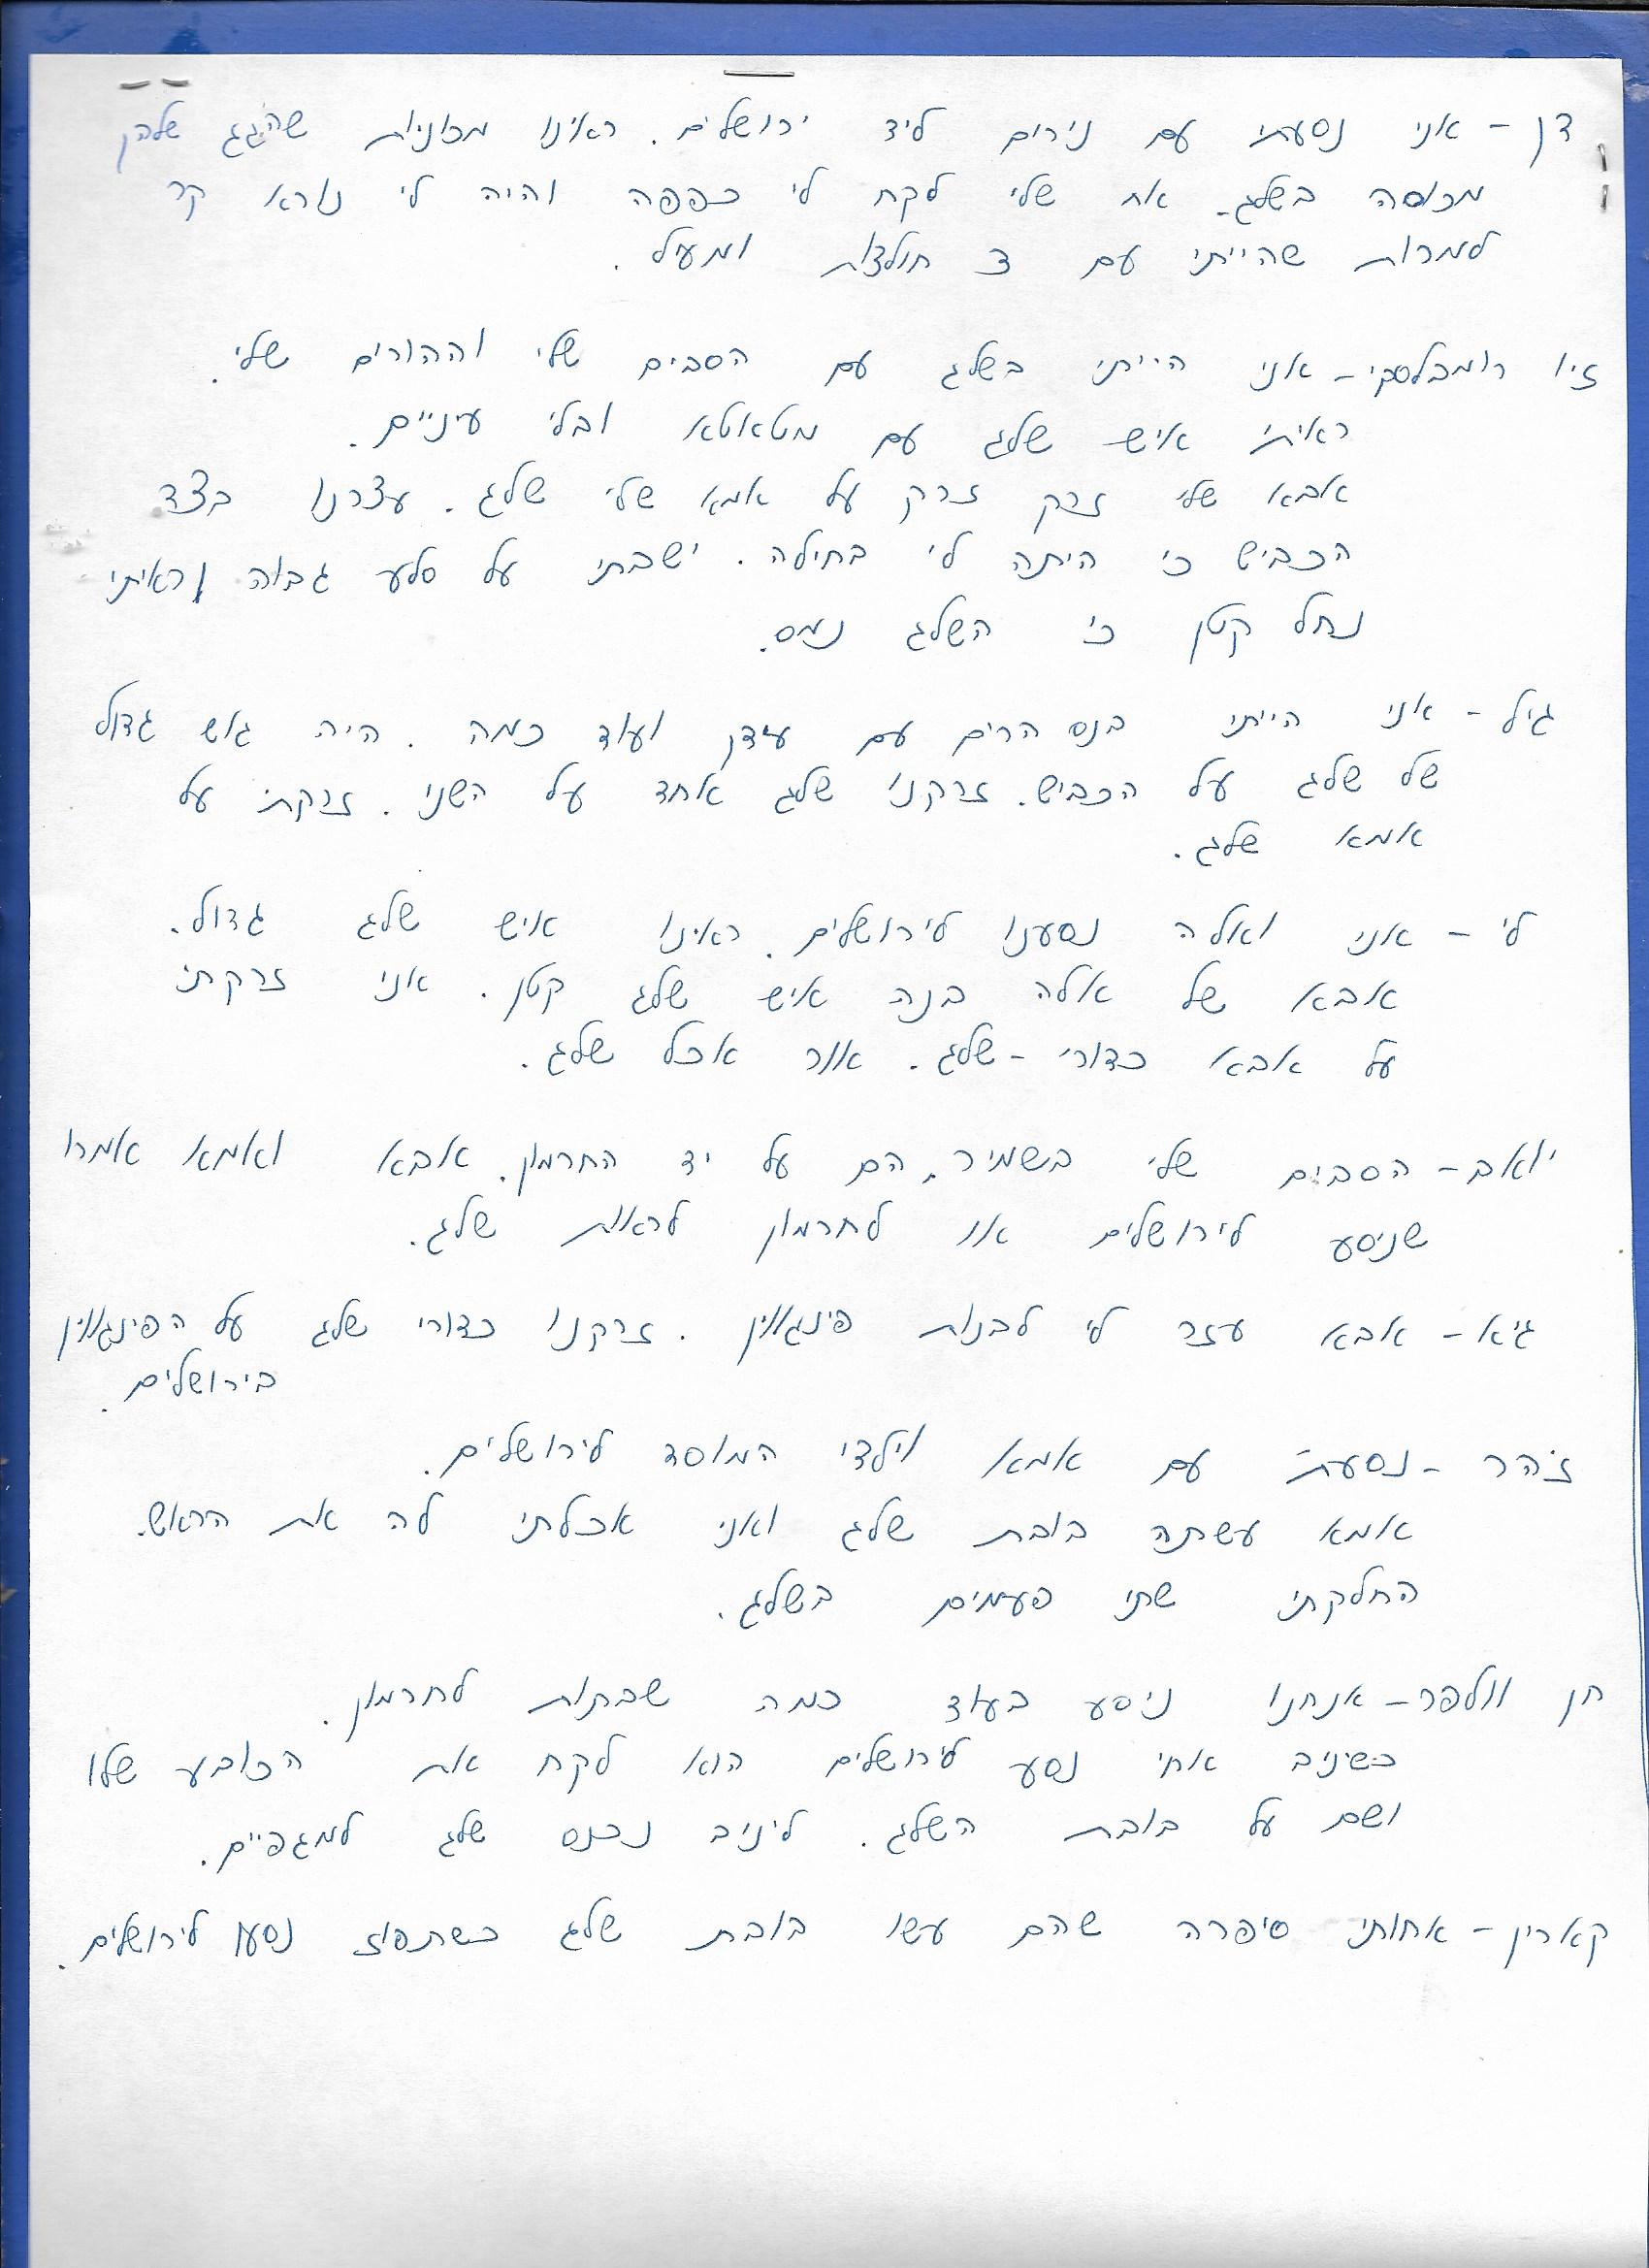 דן - אני נסעתי עם נירום ליד ירושלים. ראינו מכוניות שהגג שלהן
מכוסה בשלג. אח שלי לקח לי כפפה והיה לי נורא קר
למרות שהייתי עם 3 חולצות ומעיל.
זיו רומבלסקי - אני הייתי בשלג עם הסבים שלי וההורים שלי.
ראיתי איש שלג עם מטאטא ובלי עיניים.
אבא שלי זרק זרק על אמא שלי שלג. עצרנו בצד
הכביש כי היתה לי בחילה. ישבתי על סלע גבוה וראיתי
נחל קטן כי השלג נמס.
גיל - אני הייתי בנס הרים עם עידן ועוד כמה. היה גוש גדול
של שלג על הכביש. זרקנו שלג אחד על השני. זרקתי על
אמא שלג.
לי - אני ואלה נסענו לירושלים. ראינו איש שלג גדול.
אבא של אלה בנה איש שלג קטן. אני זרקתי
על אבא כדורי - שלג. אור אכל שלג.
יואב - הסבים שלי בשמיר, הם על יד החרמון. אבא ואמא אמרו
שניסע לירושלים או לחרמון לראות שלג.
גיא - אבא עזר לי לבנות פינגווין. זרקנו כדורי שלג על הפינגווין
בירושלים.
זוהר - נסעתי עם אמא וילדי המוסד לירושלים.
אמא עשתה בובת שלג ואני אכלתי לה את הראש.
החלקתי שתי פעמים בשלג.
חן וולפר - אנחנו ניסע בעוד כמה שבתות לחרמון.
כשיניב אחי נסע לירושלים הוא לקח את הכובע שלו
ושם על בובת השלג. ליניב נכנס שלג למגפיים.
קארין - אחותי סיפרה שהם עשו בובת שלג כשתפוז נסעו לירושלים.